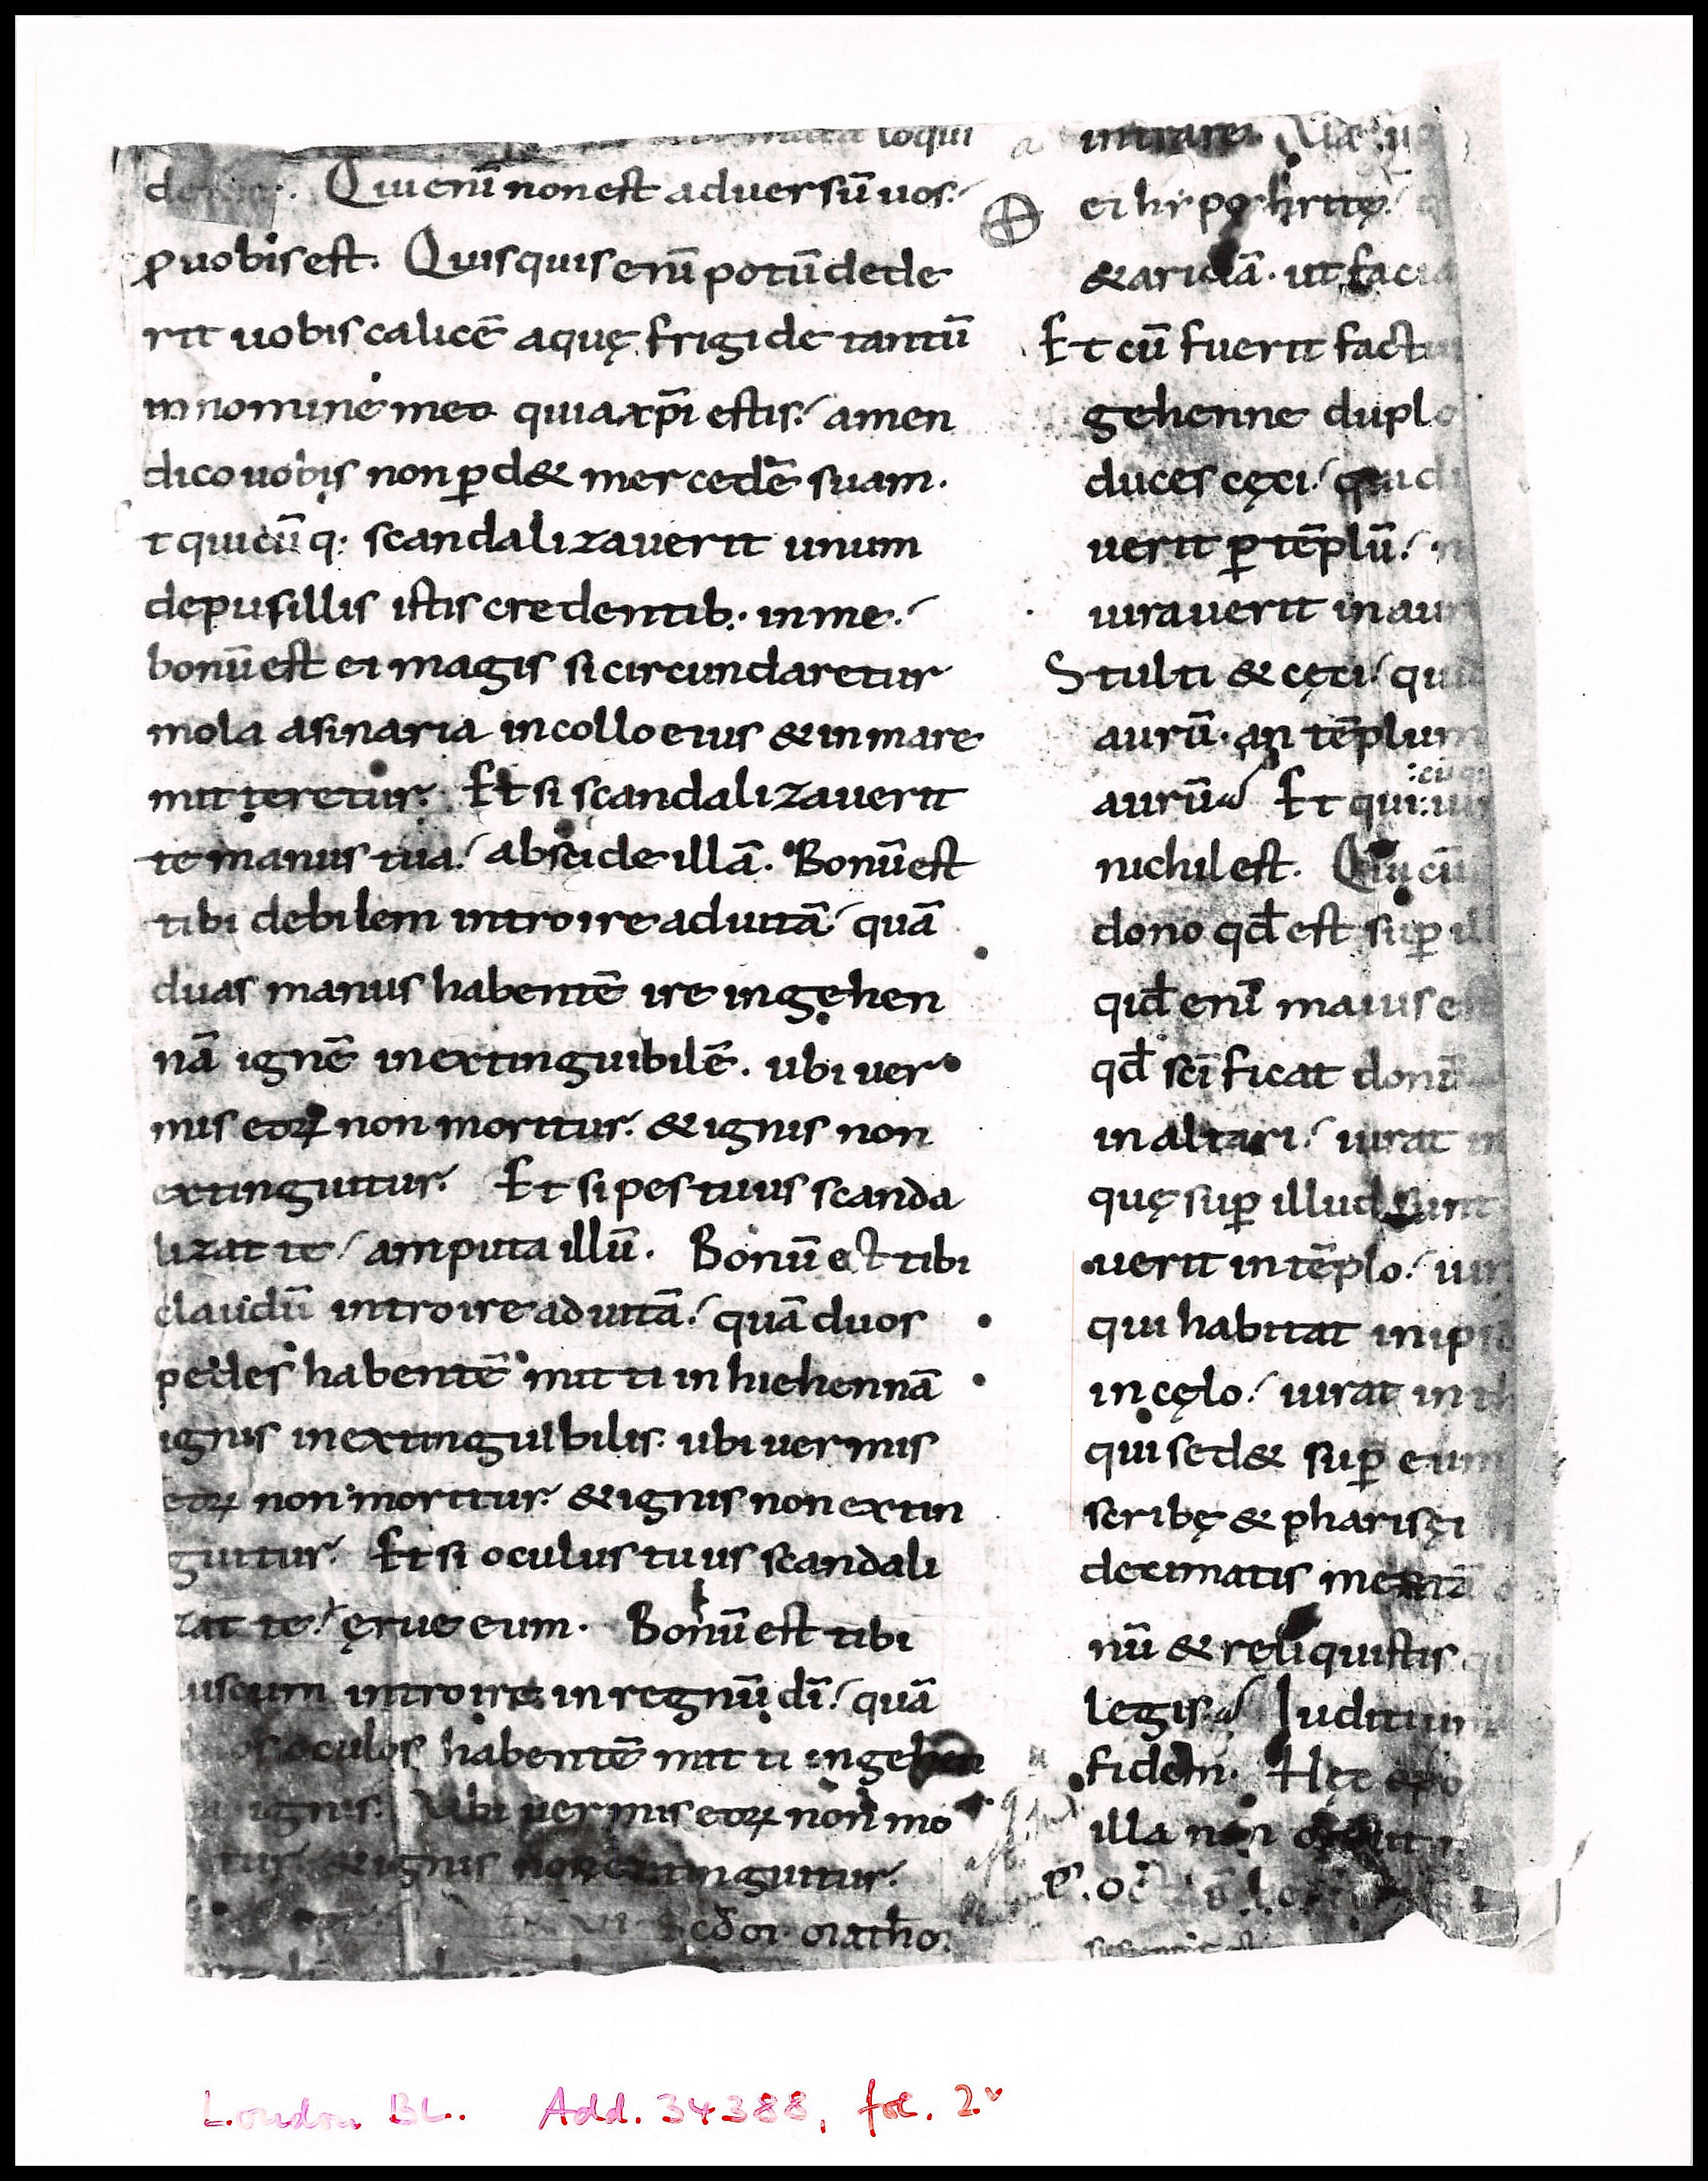 loqui
Qui enī non est aduersū uos.
ꝓ uobis est. Quisquis enī potū dede
rit uobis calicē aquę frigide tantū
in nomine meo quia xp̄i estis. amen
dico uobis non ꝑd& mercedē suam.
t quicūq: scandalizauerit unum
de pusillis istis credentib: in me.
bonū est ei magis si circundaretur
mola asinaria in collo eius & in mare
mitteretur. Et si scandalizauerit
te manus tua. abscide illā. Bonū est
tibi debilem introire ad uitā quā
duas manus habentē ire in gehen
nā ignē inextinguibilē. ubi uer
mis eoꝝ non moritur. & ignis non
extinguitur. Et si pes tuus scanda
lizat te amputa illū. Bonū est tibi
claudū introire ad uitā. quā duos
pedes habentē mitti in hiehennā
ignis inextinguibilis. ubi uermis
eoꝝ non moritur. & ignis non extin
guitur. Et si oculus tuus scandali
zat te. ęrue eum. Bonū est tibi
uscum introire in regnū dī. quā
os oculos habentē mitti in gehen
ignis. Ubi uermis eoꝝ non mo
tur & ignis non extinguitur.
intrare.
ei hypochritę.
& aridā. ut facia
Et cū fuerit factu
gehenne duplo
duces cęci. qui di
uerit ꝑ tēplū. n
iurauerit in aur
Stulti & cęci. quid
aurū. an tēplum
aurū Et qui:
nichil est. Quicū
dono qd̄ est suꝑ ill
qid̄ enī maius est
qd̄ scīficat donū
in altari. iurat in
quę suꝑ illud sunt
uerit in tēplo. iur
qui habitat in ips
in cęlo. iurat in th
qui sed& suꝑ eum
scribę & pharisęi
decimatis mentā
nū & reliquistis
legis. Iuditium
fidem. Hęc opo
illa non
London BL. Add. 34388, fol. 2v